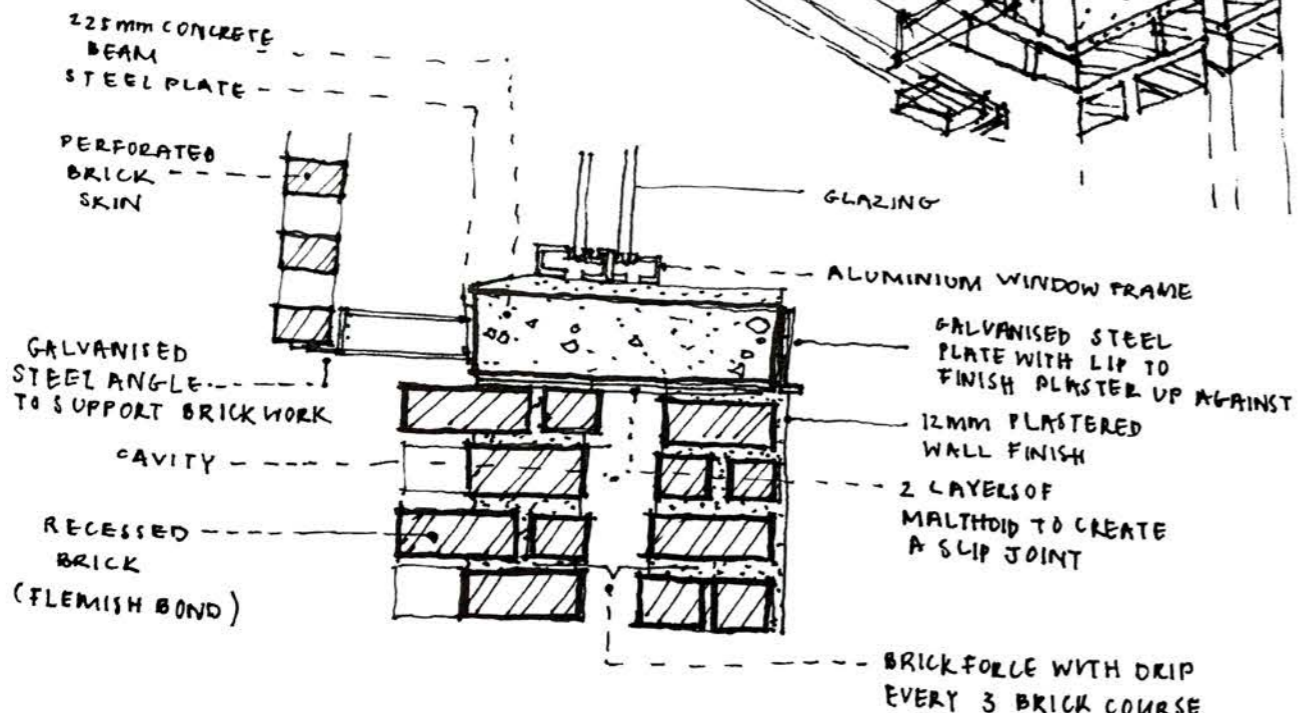 225mm CONCRETE
BEAM
STEEL PLATE
PERFORATED
BRICK
SKIN
GALVANISED
STEEL ANGLE
TO SUPPORT BRICKWORK
CAVITY
RECESSED
BRICK
(FLEMISH BOND)
GLAZING
ALUMINIUM WINDOW FRAME
GALVANISED STEEL
PLATE WITH LIP TO
FINISH PLASTER UP AGAINST
12mm PLASTERED
WALL FINISH
2 LAYERS OF
MALTHOID TO CREATE
A SLIP JOINT
BRICKFORCE WITH DRIP
EVERY 3 BRICK COURSE